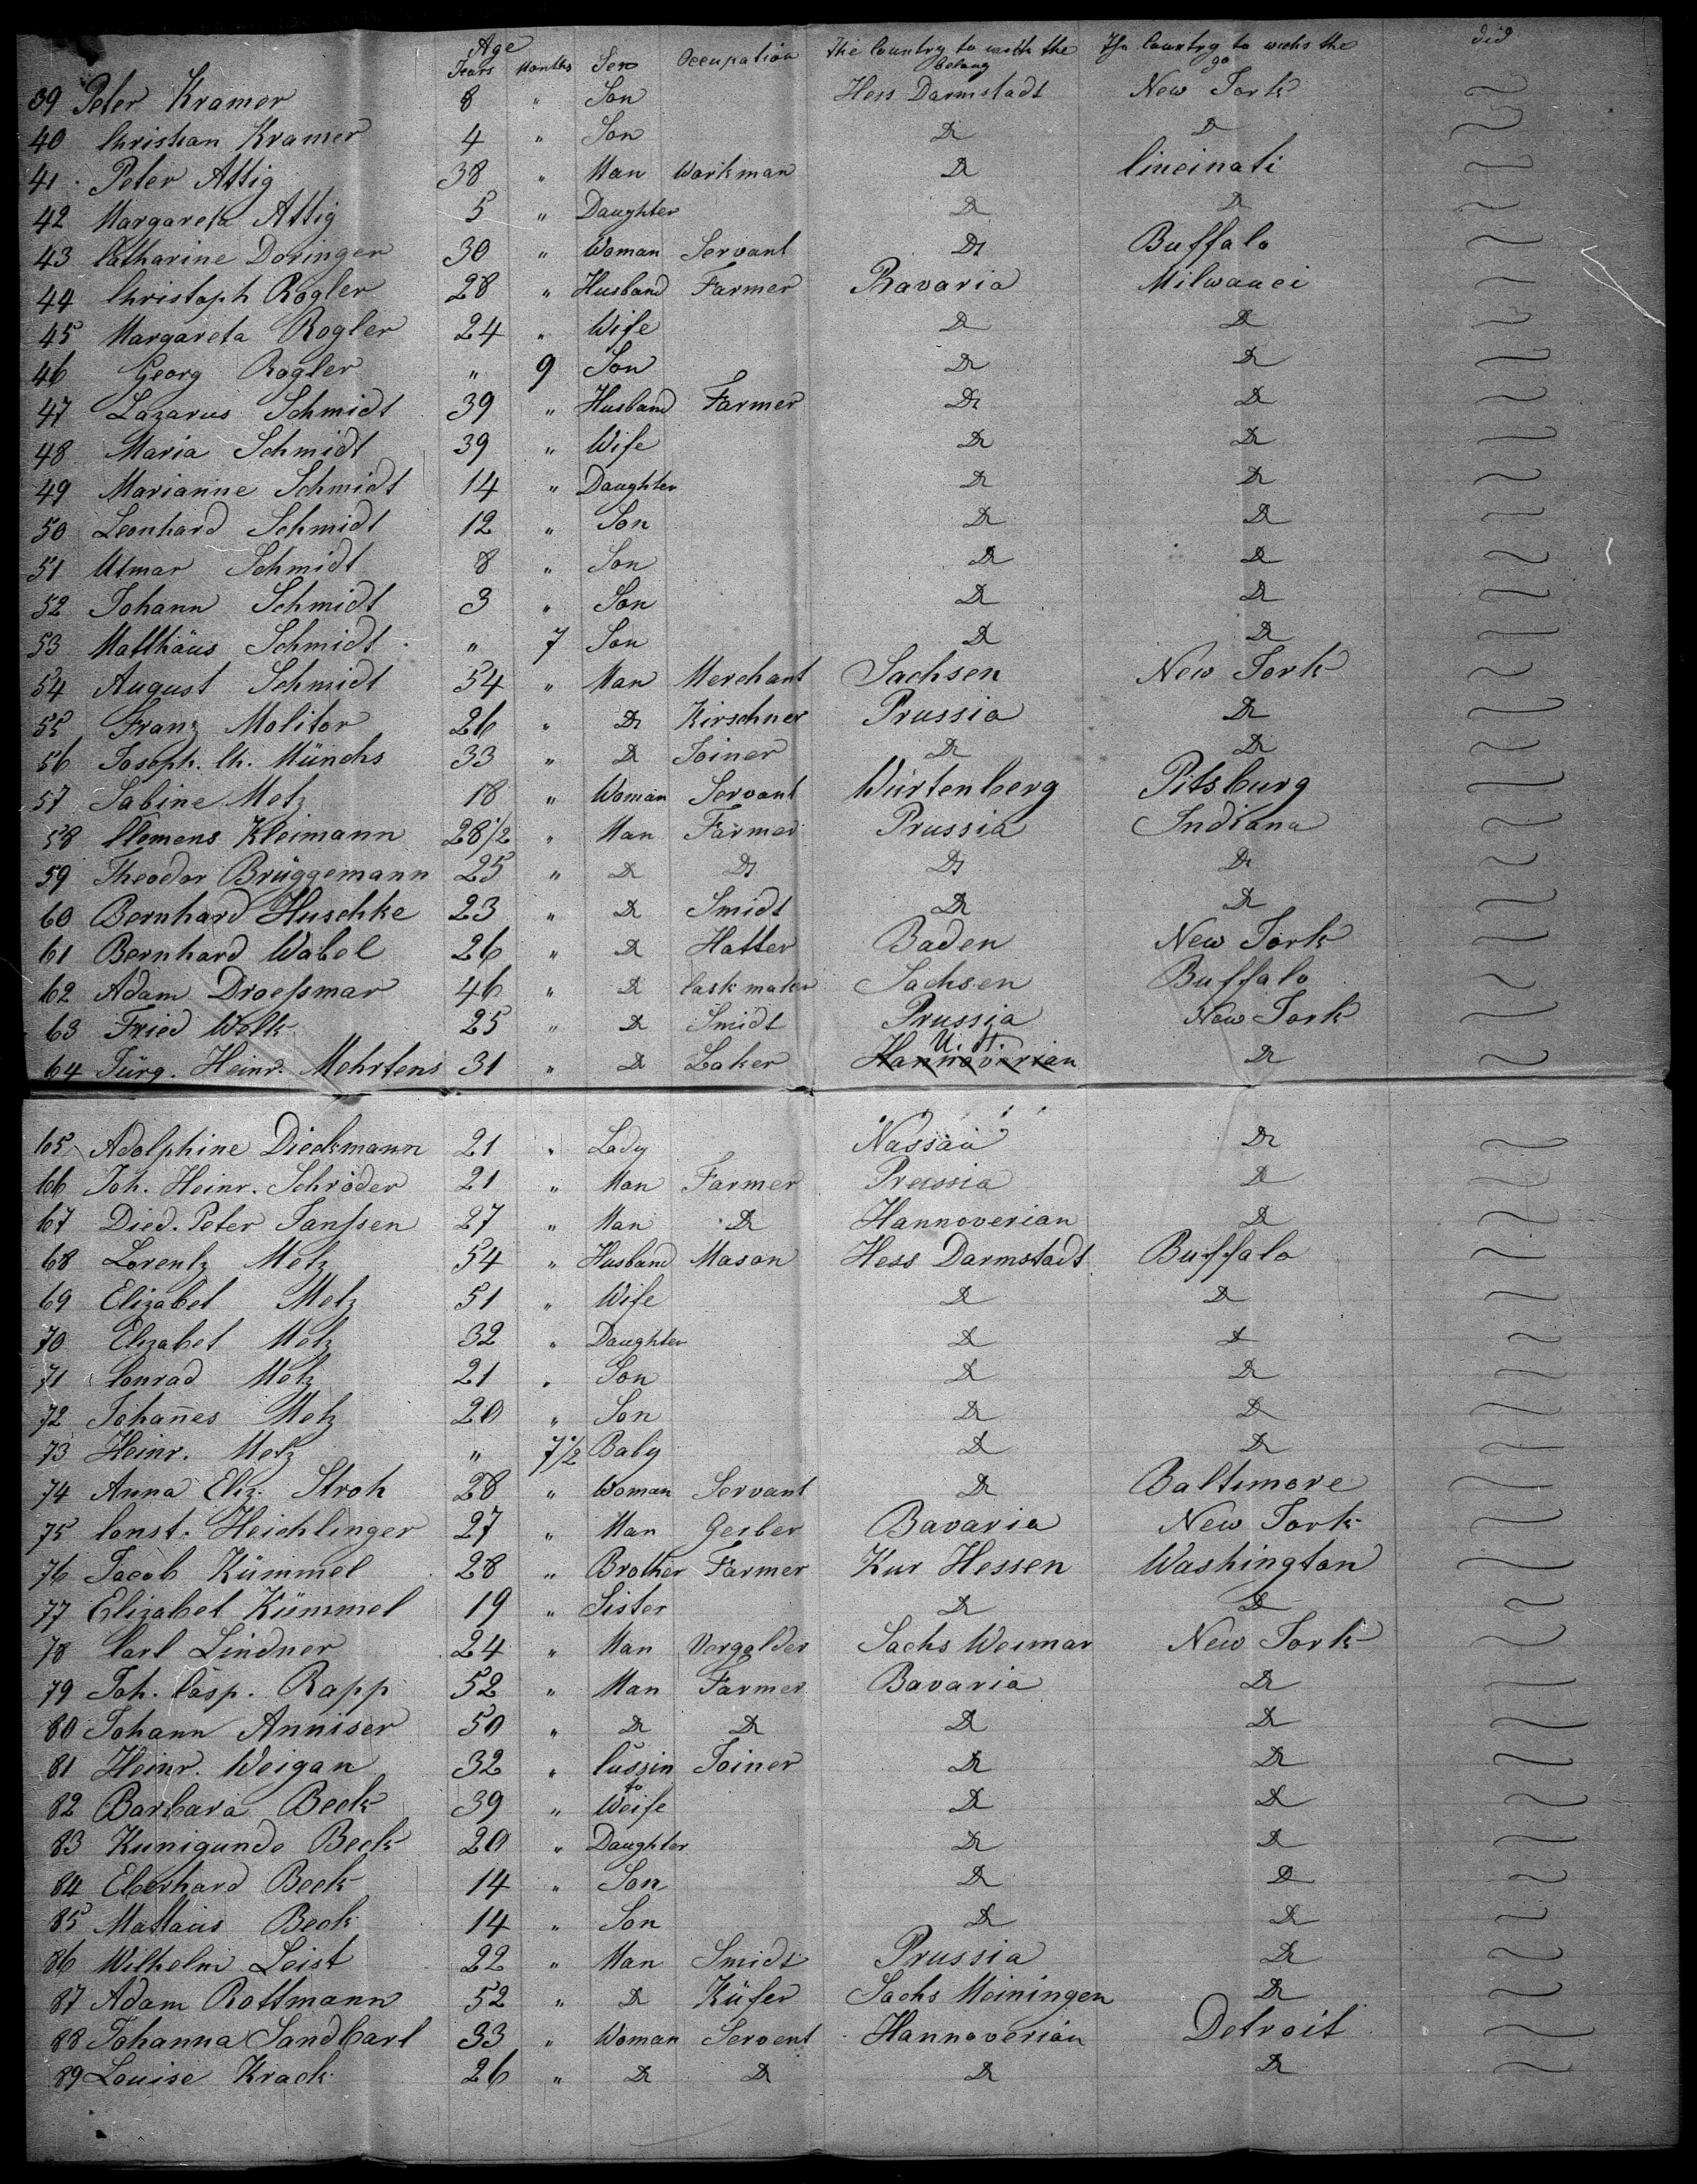 Age
Years Months Sex Occupation The Country to with the belong The Country to wichs the go did
39 Peter Kramer 8 " Son Hess Darmstadt New York
40 Christian Kramer 4 " Son Do Do
41 Peter Attig 38 " Man Workman Do Cincinati
42 Margareta Attig 5 " Daughter Do Do
43 Catharine Doringer 30 " Woman Servant Do Buffalo
44 Christoph Rogler 28 " Husband Farmer Bavaria Milwauei
45 Margareta Rogler 24 " Wife Do Do
46 Georg Rogler " 9 Son Do Do
47 Lazarus Schmidt 39 " Husband Farmer Do Do
48 Maria Schmidt 39 " Wife Do Do
49 Marianne Schmidt 14 " Daughter Do Do
50 Leonhard Schmidt 12 " Son Do Do
51 Utmar Schmidt 8 " Son Do Do
52 Johann Schmidt 3 " Son Do Do
53 Matthäus Schmidt " 7 Son Do Do
54 August Schmidt 54 " Man Merchant Sachsen New York
55 Franz Molitor 26 " Do Kirschner Prussia Do
56 Joseph. Ch. Münchs 33 " Do Joiner Do Do
57 Sabine Metz 18 " Woman Servant Würtenberg Pitsburg
58 Clemens Kleimann 28 1/2 " Man Farmer Prussia Indiana
59 Theodor Brüggemann 25 " Do Do Do Do
60 Bernhard Huschke 23 " Do Smidt Do Do
61 Bernhard Wabel 26 " Do Hatter Baden New York
62 Adam Droessmar 46 " Do Cask maker Sachsen Buffalo
63 Fried Wolk 25 " Do Smidt Prussia New York
64 Jürg. Heinr. Mehrtens 31 " Do Baker Hannoverian U. St. Do
65 Adolphine Dieckmann 21 " Lady Nassau Do
66 Joh. Heinr. Schröder 21 " Man Farmer Preussia Do
67 Died. Peter Janssen 27 " Man Do Hannoverian Do
68 Lorentz Metz 54 " Husband Mason Hess Darmstadt Buffalo
69 Elizabet Metz 51 " Wife Do Do
70 Elizabet Metz 32 " Daughter Do Do
71 Conrad Metz 21 " Son Do Do
72 Johan̄es Metz 20 " Son Do Do
73 Heinr. Metz " 7 1/2 Baby Do Do
74 Anna Eliz. Stroh 28 " Woman Servant Do Baltimore
75 Const. Heichlinger 27 " Man Gerber Bavaria New York
76 Jacob Kümmel 28 " Brother Farmer Kur Hessen Washington
77 Elizabet Kümmel 19 " Sister Do Do
78 Carl Lindner 24 " Man Vergolder Sachs Weimar New York
79 Joh. Casp. Rapp 52 " Man Farmer Bavaria Do
80 Johann Anniser 50 " Do Do Do Do
81 Heinr. Weigan 32 " Cussin to Joiner Do Do
82 Barbara Beck 39 " Weife Do Do
83 Kunigunde Beck 20 " Daughter Do Do
84 Eberhard Beck 14 " Son Do Do
85 Mattäus Beck 14 " Son Do Do
86 Wilhelm Leist 22 " Man Smidt Prussia Do
87 Adam Rottmann 52 " Do Küfer Sachs Meiningen Do
88 Johanna Sandbarl 33 " Woman Servent Hannoverian Detroit
89 Louise Krack 26 " Do Do Do Do